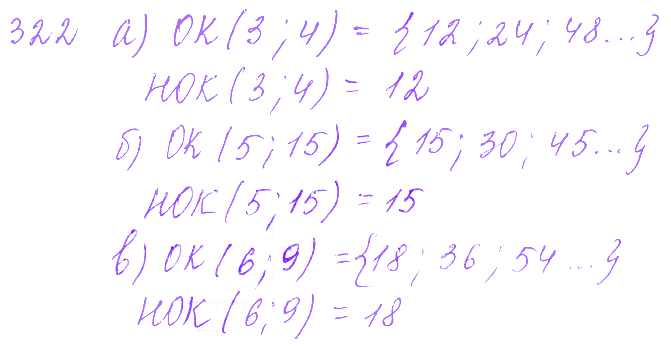 322 а) ОК(3;4) = {12;24;48...}
НОК(3;4) = 12
б) ОК(5;15) = {15;30;45...}
НОК(5;15) = 15
в) ОК(6;9) = {18;36;54...}
НОК(6;9) = 18